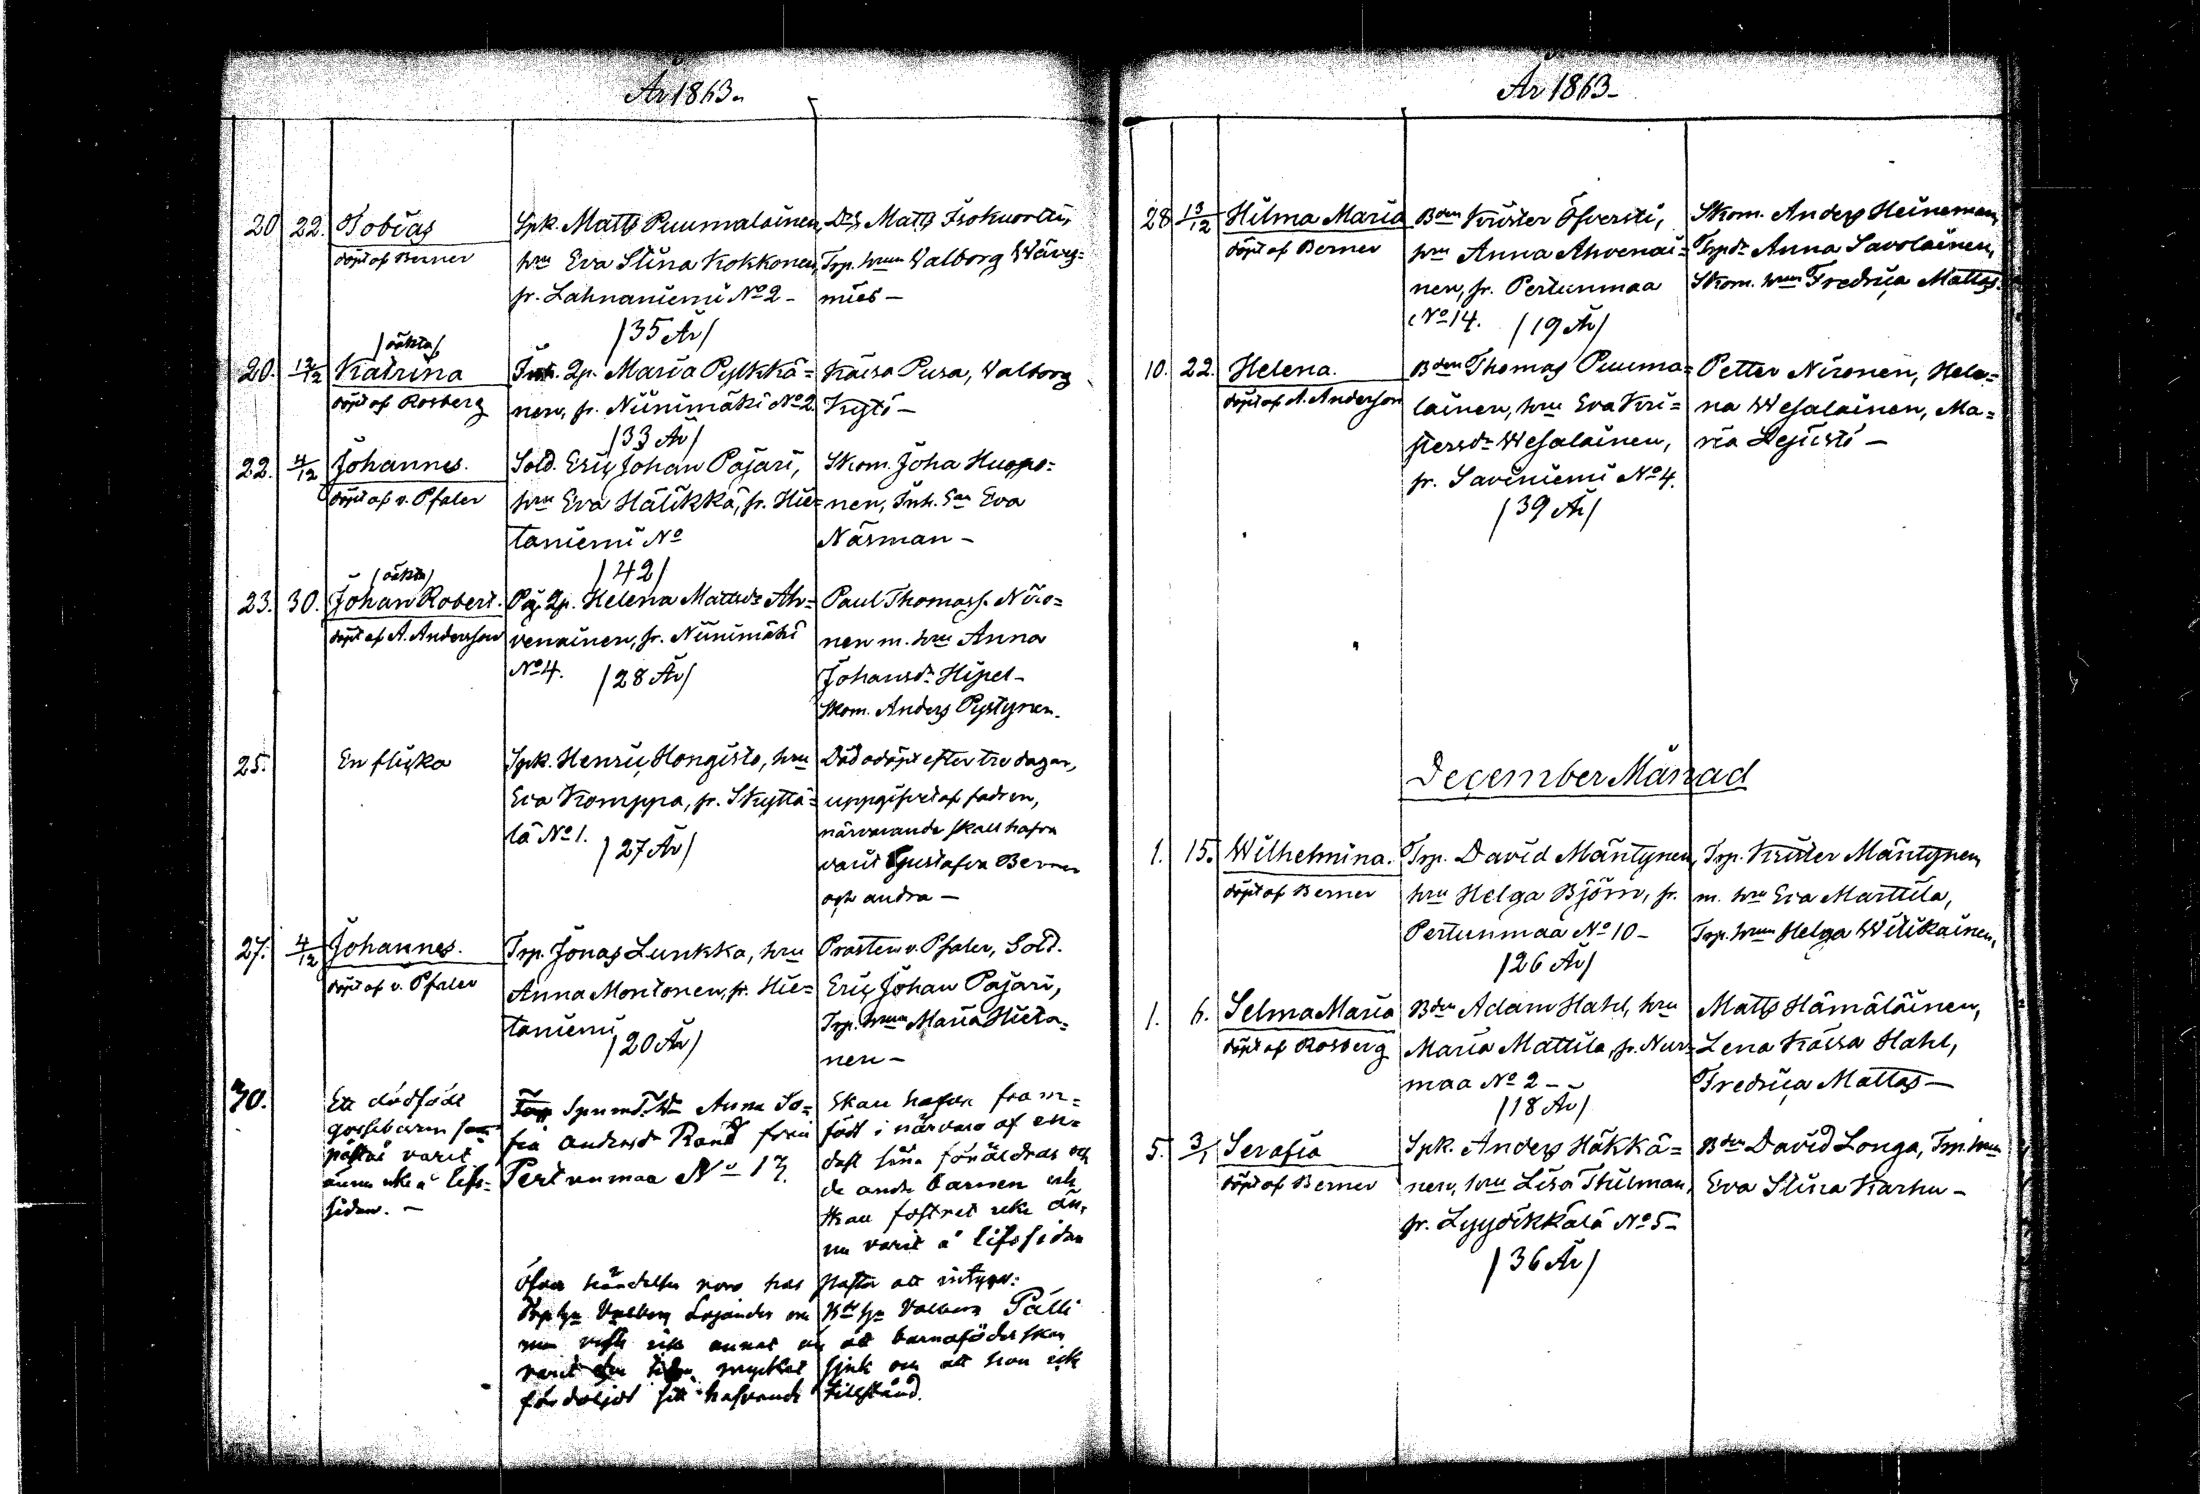 År 1863.
20 22. Tobias
döpt af Berner
Spk. Matts Puumalainen,
hru Eva Stina Kokkonen,
fr. Lahnaniemi No 2 -
/35 År/
Matts Isokuortti,
Trp. hrun Walborg Wäry=
mies -
/oäkta/
20. 12/12 Katrina
döpt af Rosberg
Inh. Qp. Maria Pylkkä=
nen, fr. Niinimäki No 2
/33 År/
Kaisa Pusa, Walborg
Kytö -
22. 4/12 Johannes.
döpt af v. Pfaler
Sold. Eric Johan Pajari,
hru Eva Hälikkä, fr. Hie=
taniemi No
/42/
Skom. Joha Huppo=
nen, Inh. Eva
Näsman -
/oäkta/
23. 30. Johan Robert.
döpt af A. Andersson
Pig. Qp. Helena Mattsdr Ah=
venainen, fr. Niinimäki
No 4. /28 År/
Paul Thomass. Niro=
nen m. hru Anna
Johansdr Hipel -
Skom. Anders Pystynen.
25. En flicka
Spk. Henric Hongisto, hru
Eva Komppa, fr. Skyttä=
lä No 1. /27 År/
Död odöpt efter tre dagar,
uppgifvet af fadren,
närvarande skall hafva
varit Gustafva Berner
och andra -
27. 4/12 Johannes.
döpt af v. Pfaler
Trp. Jonas Lunkka, hru
Anna Montonen, fr. Hie=
taniemi
/20 År/
Prosten v. Pfaler, Sold.
Eric Johan Pajari,
Trp. hrun Maria Hieta=
nen -
30. Ett dödfödt
gossebarn som
påstås varit
ännu icke å lifs=
sidan. -
Anna So=
fia Andersdr Rand från
Pertunmaa No 13.
Skall hafva fram=
födt i närvaro af en=
dast sina föräldrar och
de andra barnen och
skall fostret icke än=
nu varit å lifssidan
Ofvan händelse
Valborg Valborg Pälli
icke annat än att barnaföderskan
varit mycket sjuk och att hon icke
fördoljdt sitt hafvande tillstånd.
År 1863 -
28 13/12 Hilma Maria
döpt af Berner
Bden Krister Öfversti,
hru Anna Ahvenai=
nen, fr. Pertunmaa
No 14. /19 År/
Skom. Anders Heineman,
Trpdr Anna Savolainen,
Skom. hrun Fredrica Mattas.
10. 22. Helena.
döpt af A. Andersson
Bden Thomas Puuma=
lainen, hru Eva Kri=
stersdr Wesalainen,
fr. Saviniemi No 4.
/39 År/
Petter Nironen, Hele=
na Wesalainen, Ma=
ria Lejisti -
December Månad
1. 15. Wilhelmina.
döpt af Berner
Trp. David Mäntynen,
hru Helga Björn, fr.
Pertunmaa No 10 -
/26 År/
Trp. Krister Mäntynen
m. hru Eva Marttila,
Trp. hrun Helga Wilikainen,
1. 6. Selma Maria
döpt af Rosberg
Bden Adam Hahl, hru
Maria Mattila, fr. Nur=
maa No 2 -
/18 År/
Matts Hämäläinen,
Lena Kaisa Hahl,
Fredrica Mattas -
5. 3/1 Serafia
döpt af Berner
Spk. Anders Häkkä=
nen, hru Lisa Thilman,
fr. Lyydikkälä No 5 -
/36 År/
Bden David Longa, Trp. hrun
Eva Stina Karhu -